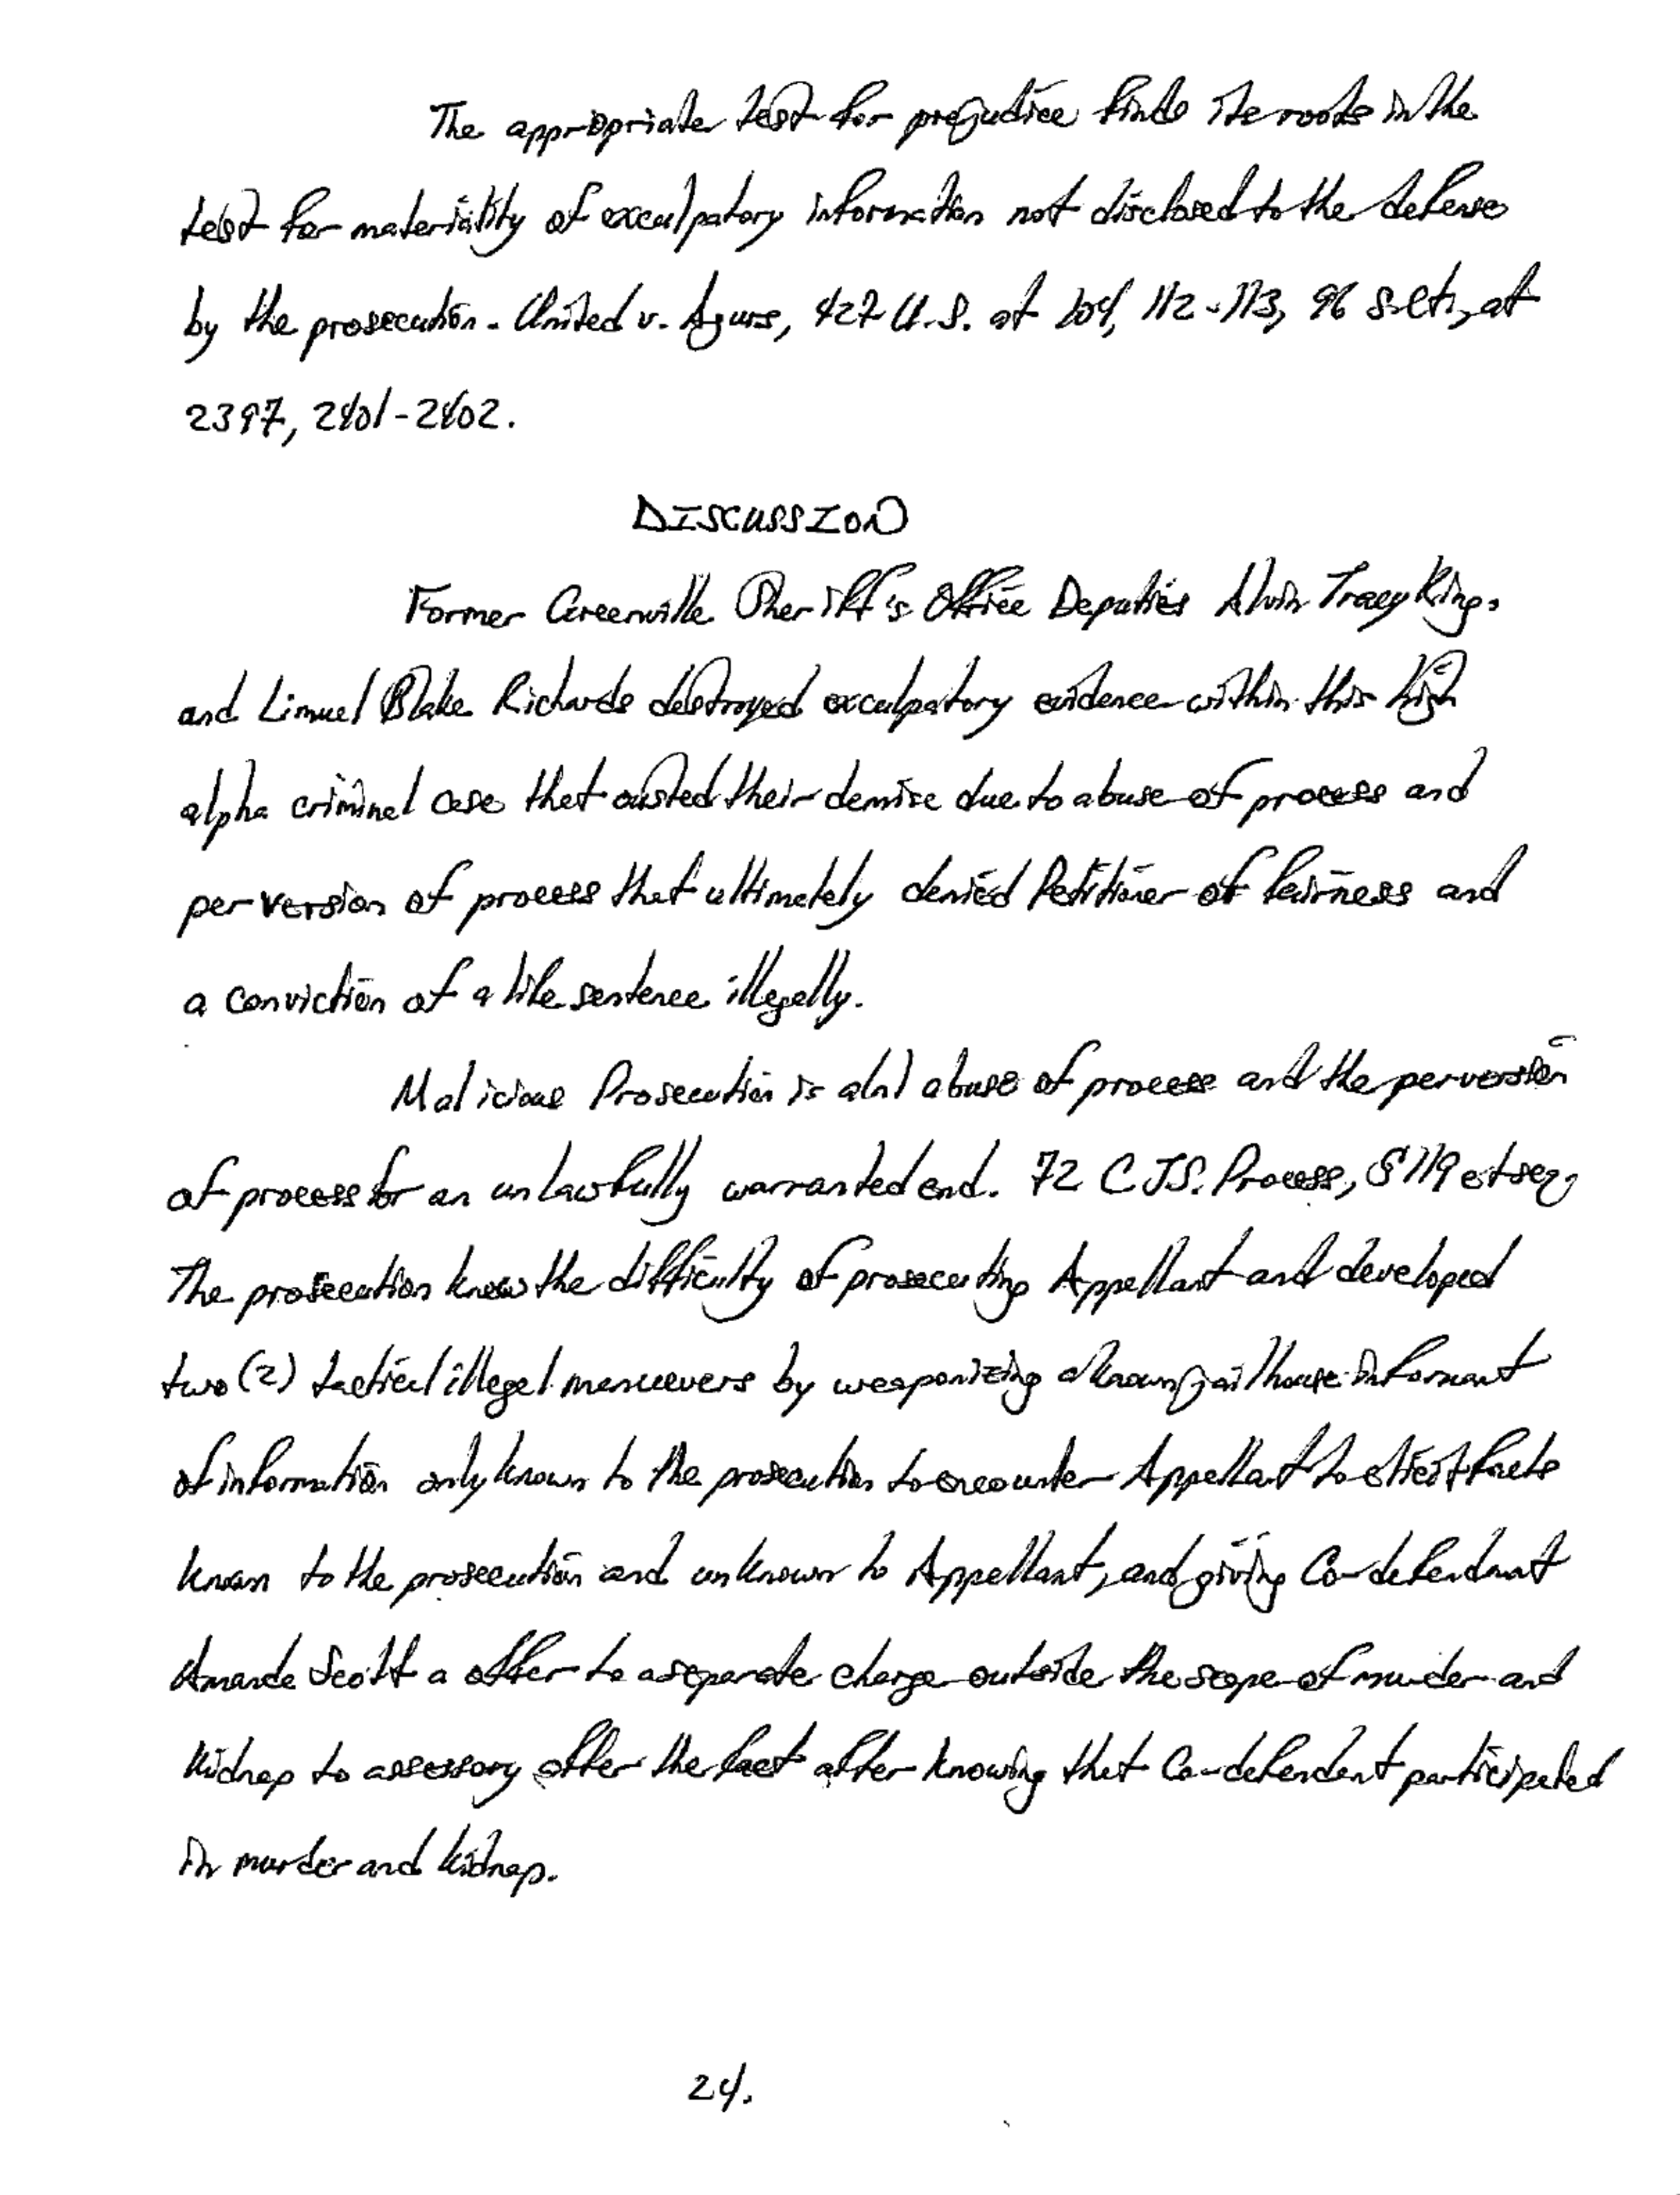 The appropriate test for prejudice finds its roots in the
test for materiality of exculpatory information not disclosed to the defense
by the prosecution. United v. Agurs, 427 U.S. at 104, 112-113, 96 S.Ct., at
2397, 2401-2402.
DISCUSSION
Former Greenville Sheriff's Office Deputies Alvin Tracy King,
and Limuel Blake Richards destroyed exculpatory evidence within this high
alpha criminal case that ousted their demise due to abuse of process and
perversion of process that ultimately denied Petitioner of fairness and
a conviction of a life sentence illegally.
Malicious Prosecution is abuse of process and the perversion
of process for an unlawfully warranted end. 72 C.J.S. Process, § 119 et seq,
The prosecution knew the difficulty of prosecuting Appellant and developed
two (2) tactical illegal maneuvers by weaponizing a known jailhouse informant
of information only known to the prosecution to encounter Appellant to elicit facts
known to the prosecution and unknown to Appellant, and giving Co-defendant
Amanda Scott a offer to a seperate charge outside the scope of murder and
kidnap to assessory after the fact after knowing that Co-defendant participated
in murder and kidnap.
24.